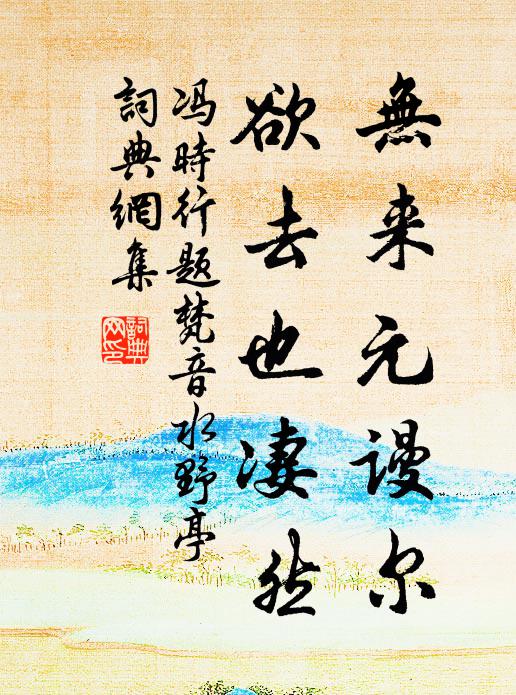 無来元謾尔
欲去也凄然
冯時行题梵音水野亭
詞典網集
詞典網印